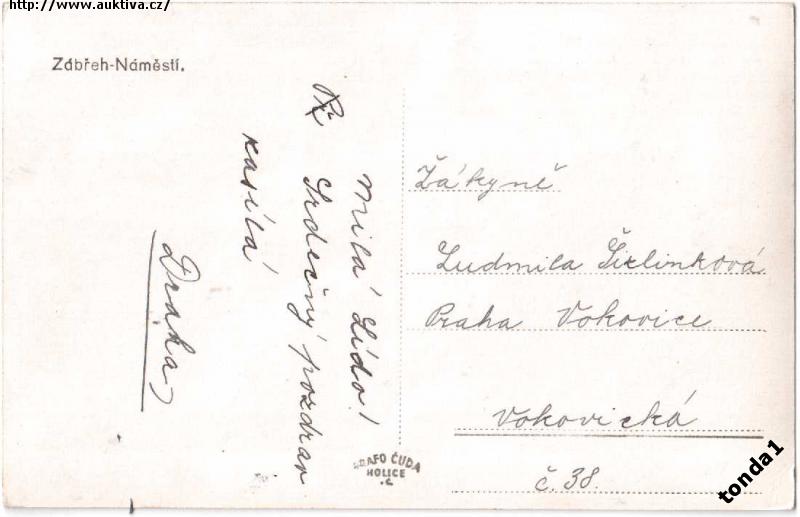 http://www.auktiva.cz/
Zábřeh-Náměstí.
Milá Lído!
Srdečný pozdrav
zasílá
Draha
Žákyně
Ludmila
Praha Vokovice
Vokovická
č. 38.
GRAFO ČUDA
HOLICE
.C
tonda1